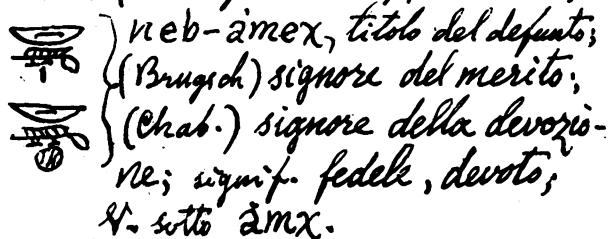 neb-âmex, titolo del defunto;
(Brugsch) signore del merito;
(Chab.) signore della devozio-
ne; signif. fedele, devoto;
V. sotto âmx.